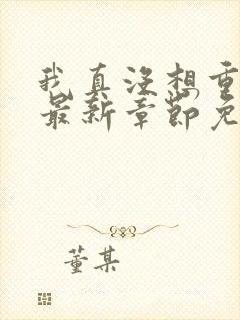 我真没想重
最新章节免
董某